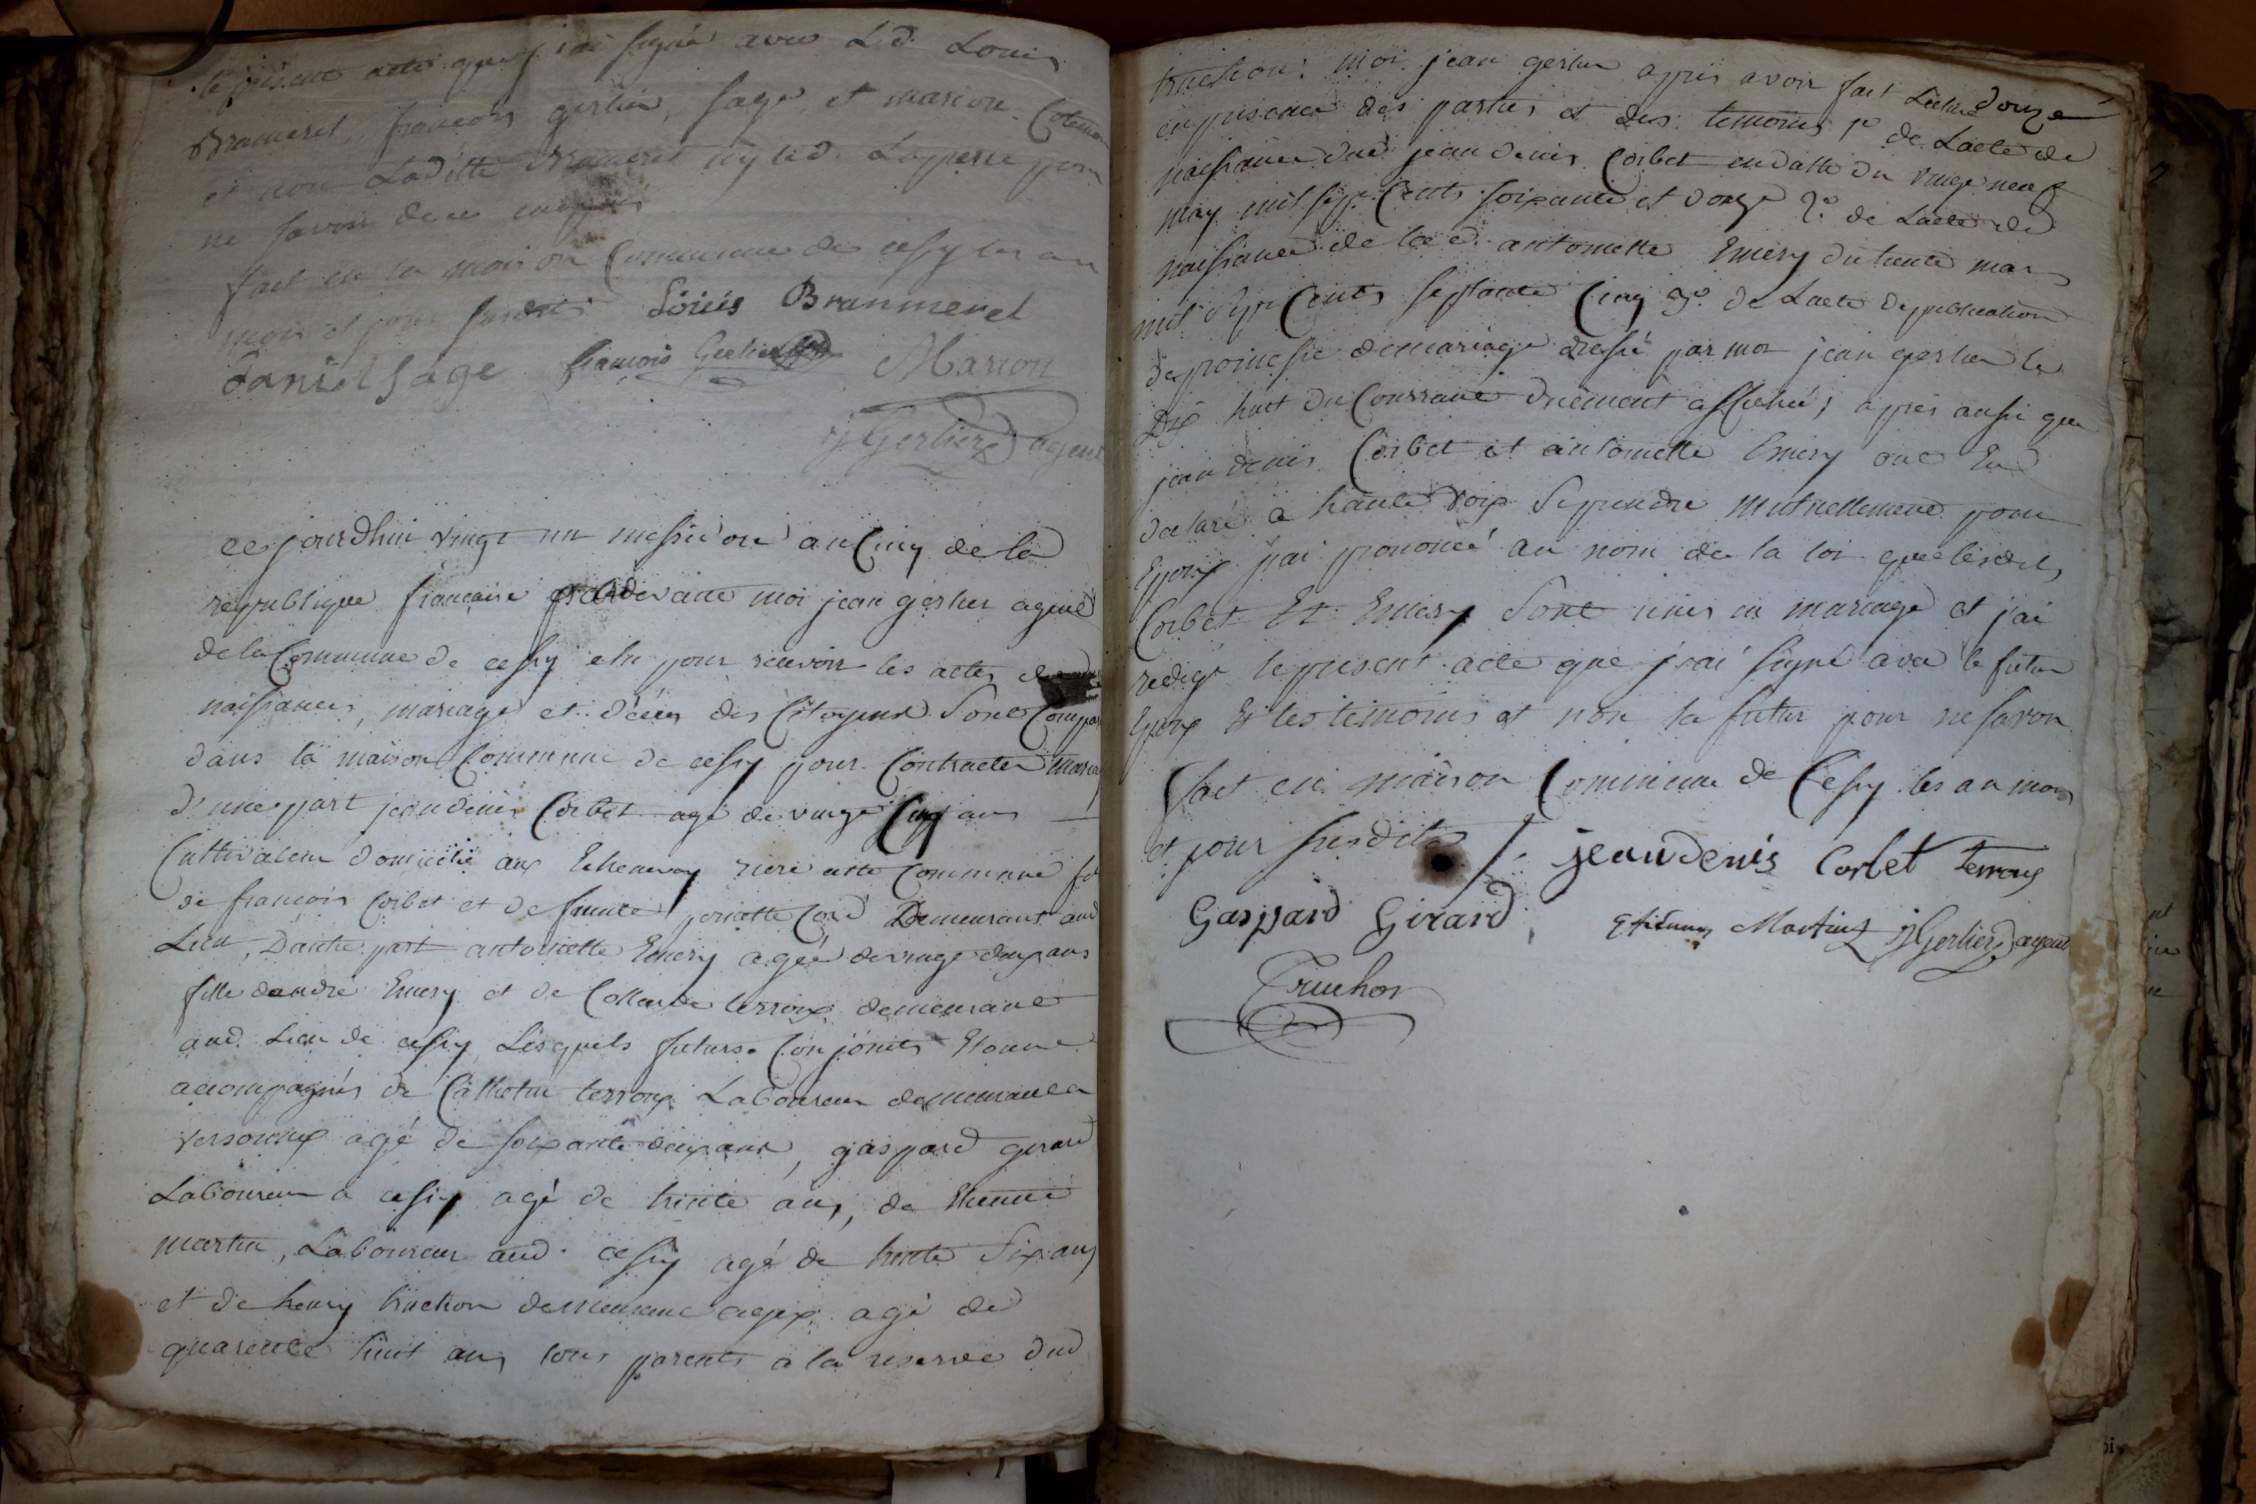 le présent acte que j'ai signé avec L.d. Louis
Brameret, françois gerlier, sage et marion
et non Laditte Brameret ny led. Laperre pour
ne savoir de ce enquis
fait en la maison Commune de cessy les an
mois et jour susdits Loüis Branmeret
daniel sage françois Gerlier Marion
j Gerlier agent
ce jourdhui vingt un messidore an Cinq de la
republique francaise pardevant moi jean gerlier agent
de la Commune de cessy elu pour recevoir les actes de
naissances, mariage et décès des Citoyens Sont Compar
dans la maison Commune de cessy pour Contracter maria
d'une part jean denis Corbet agé de vingt Cinq ans
Cultivateur domicilié aux Echenevay riere cette Commune fils
de francois Corbet et de funte pernette Demeurant aud
Lieu, Dautre part antoinette Emery agée de vingt deux ans
fille dandré Emery et de terroux demeurant
aud. Lieu de cessy Lesquels futurs Conjoints Etoient
accompagnés de terroux Laboureur demeurant a
versonnex agé de soixante deux ans, gaspard girard
Laboureur a cessy agé de trente ans, de Etienne
martin, Laboureur aud. cessy agé de trente Six ans
et de henry truchon demeurant agé de
quarente huit ans tous parents a la reserve dud
truchon; moi jean gerlier apprès avoir fait Lecture
douze
en presence des parties et des temoins 1° de Lacte de
naissance dud jean denis Corbet en datte du vingt neuf
may mil sept Cents soixante et douze 2° de Lacte de
naissance de la d. antoinette Emery du trente mars
mil sept Cents septante Cinq 3° de Lacte de publication
de promesse de mariage dressé par moi jean gerlier le
Dix huit du Courrant duement affiché; apprès aussi que
jean denis Corbet et antoinette Emery ont Eu
declaré a haute voix Se prendre mutuellement pour
Epoux j'ai prononcé au nom de la loi que lesdits
Corbet Et Emery Sont unis en mariage et j'ai
redigé le present acte que j'ai signé avec le futur
Epoux Et les temoins et non la futur pour ne savoir
fait en maison Commune de Cessy les an mois
et jour susdits jean denis Corbet terroux
Gaspard Girard Etienne Martin j Gerlier agent
Truchon